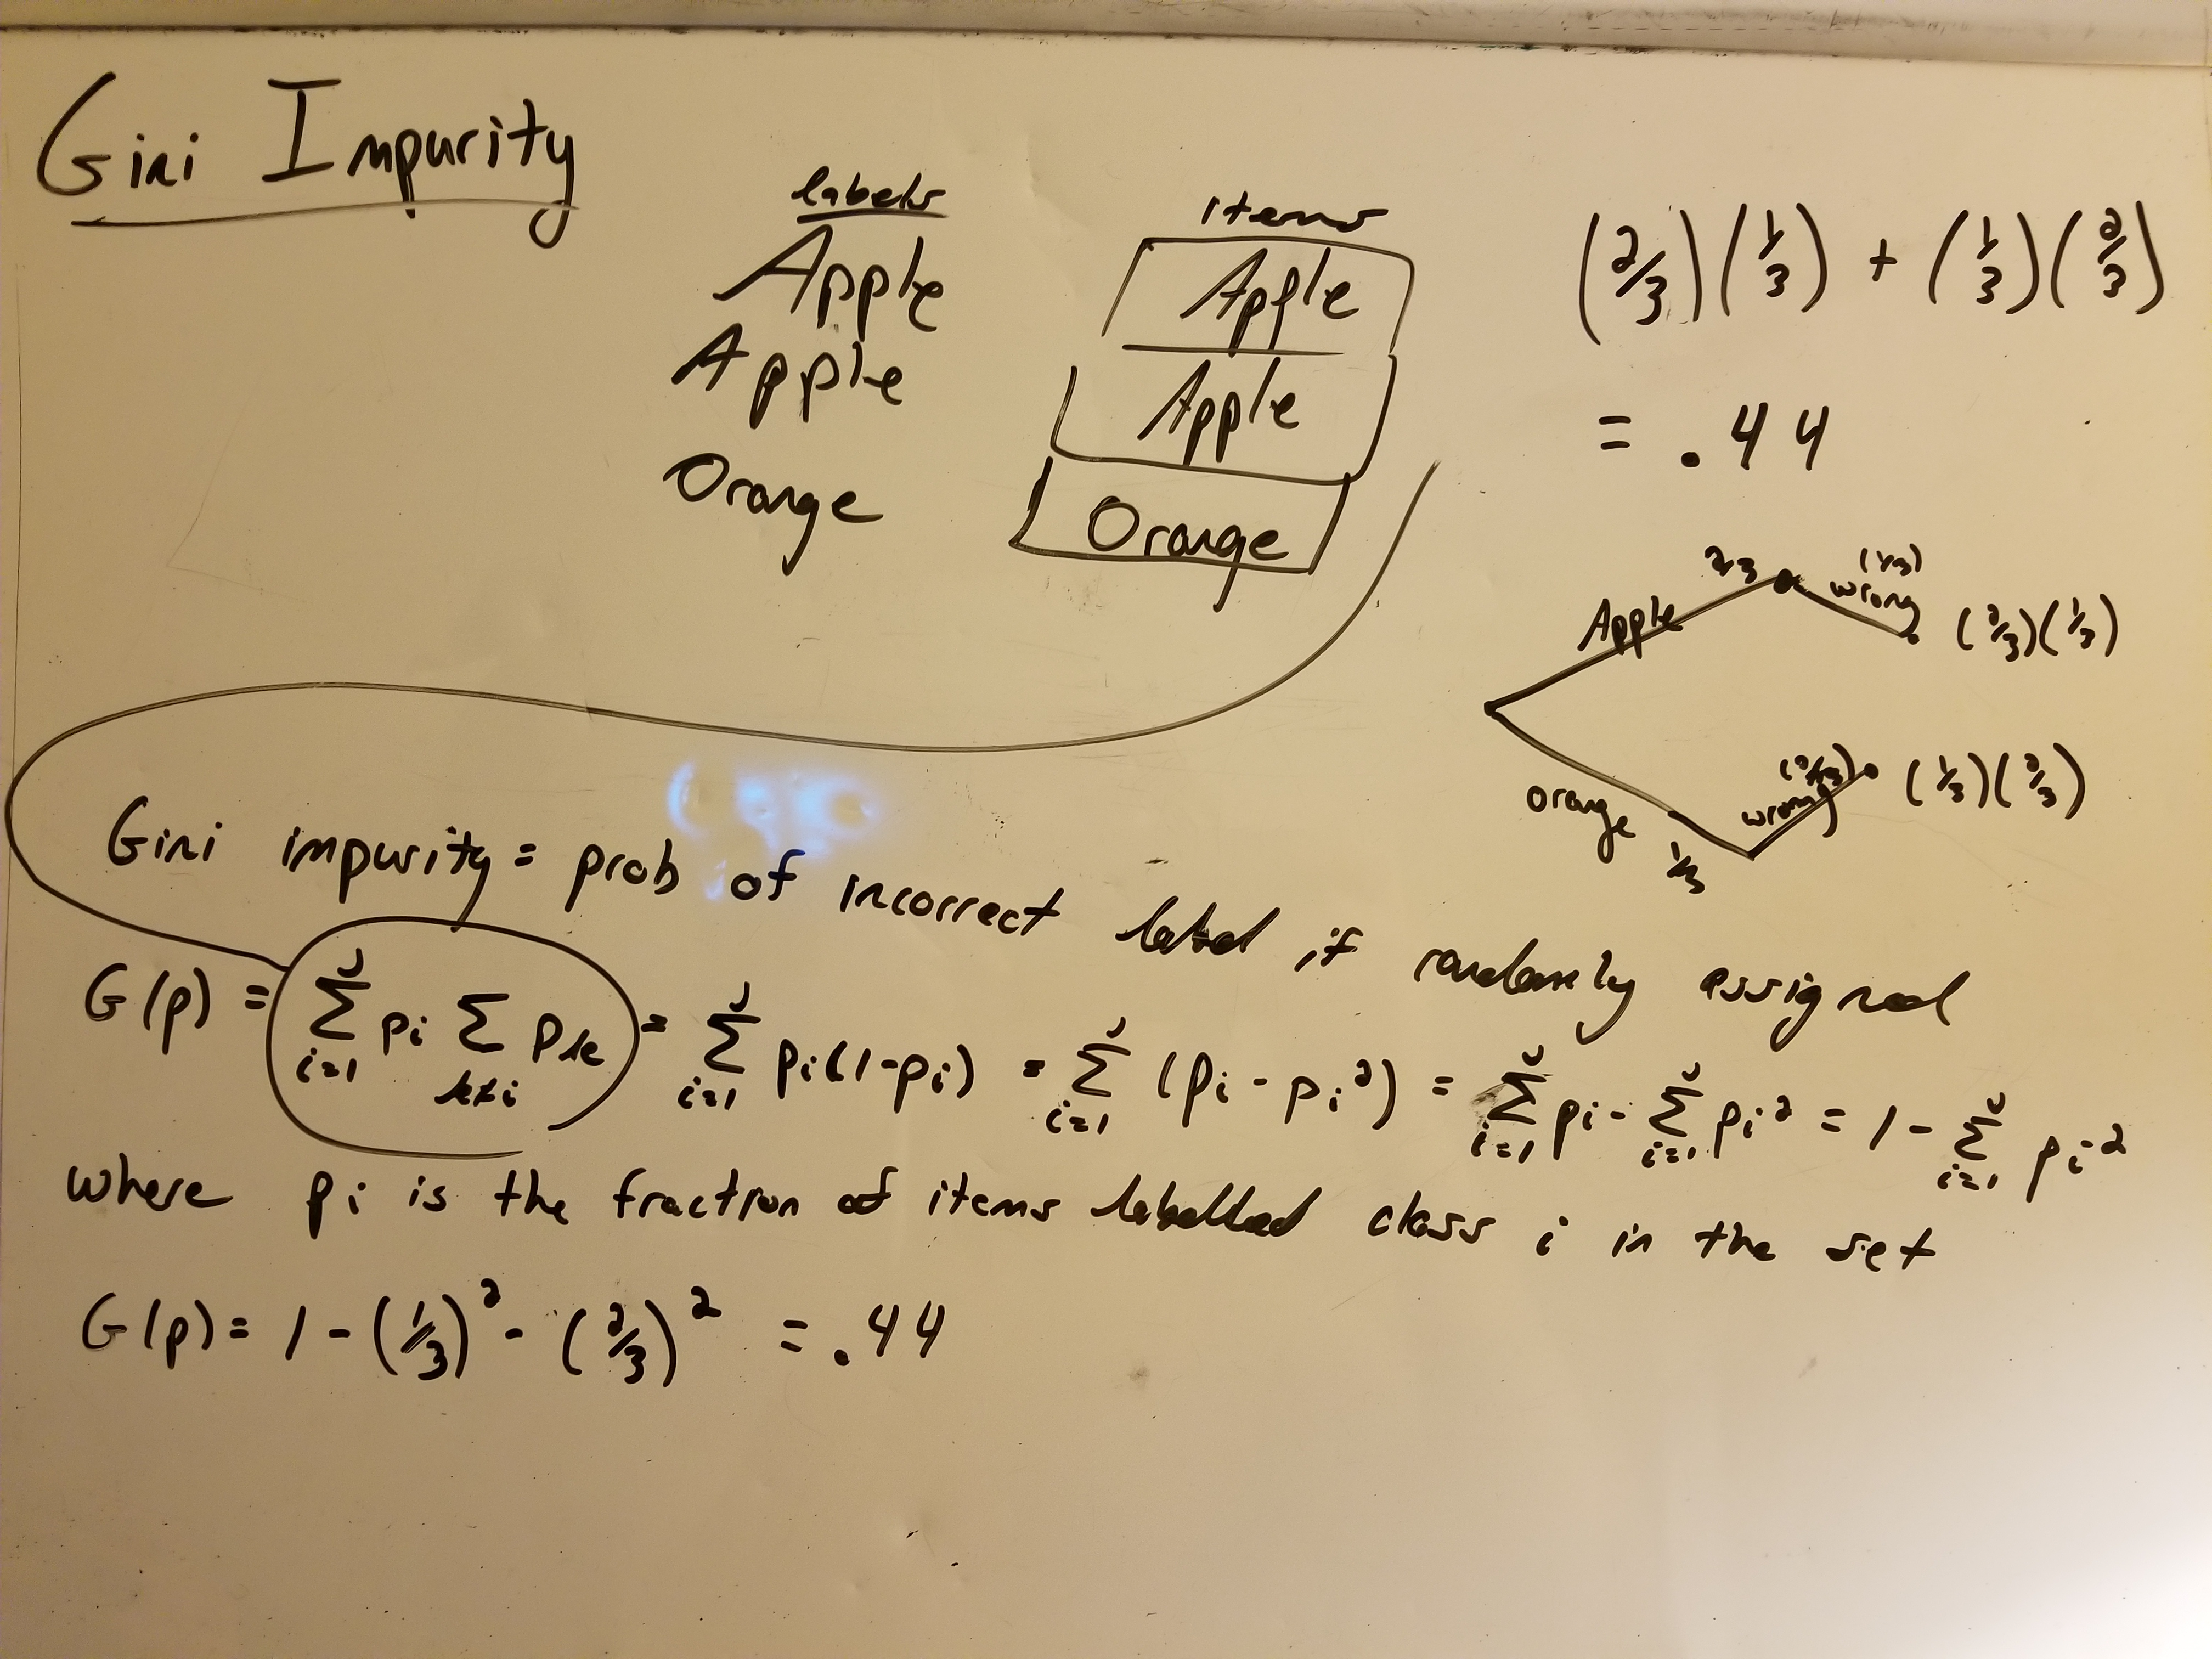 Gini Impurity
labels
Apple
Apple
Orange
items
Apple
Apple
Orange
(2/3)(1/3) + (1/3)(2/3)
= .44
Apple 2/3 (1/3) wrong (2/3)(1/3)
Orange 1/3 (2/3) wrong (1/3)(2/3)
Gini impurity = prob of incorrect label if randomly assigned
G(p) = ∑ᴶᵢ₌₁ pᵢ ∑ₖ≠ᵢ pₖ = ∑ᴶᵢ₌₁ pᵢ(1-pᵢ) = ∑ᴶᵢ₌₁ (pᵢ - pᵢ²) = ∑ᴶᵢ₌₁ pᵢ - ∑ᴶᵢ₌₁ pᵢ² = 1 - ∑ᴶᵢ₌₁ pᵢ²
where pi is the fraction of items labelled class i in the set
G(p) = 1 - (1/3)² - (2/3)² = .44